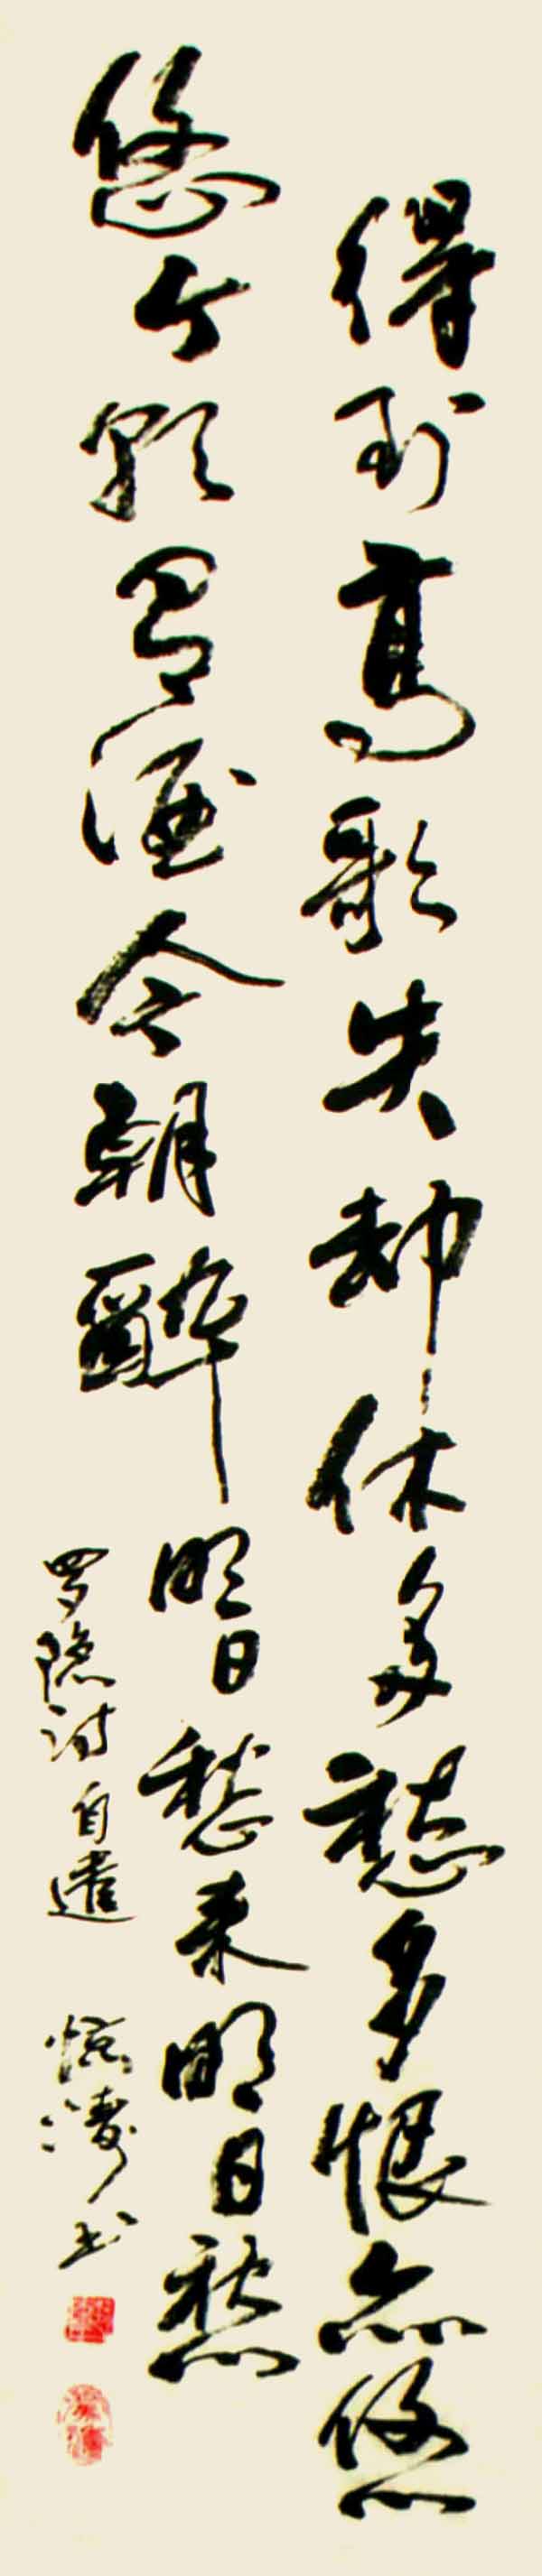 得到高歌失却休多愁多恨亦悠
悠今朝有酒今朝醉明日愁来明日愁
罗隐诗自遣 惊涛书